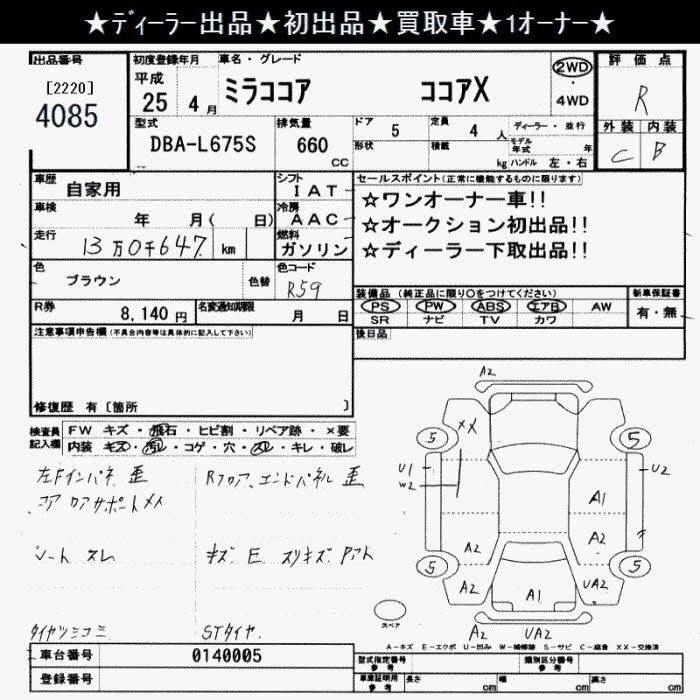 ★ディーラー出品★初出品★買取車★1オーナー★
出品番号 初度登録年月 車名・グレード 2WD 評価点
[2220] 平成 ミラココア ココアX ・ R
4085 25年 4月 4WD
型式 排気量 ドア 5 定員 4人 ディーラー・並行 外装 内装
DBA-L675S 660cc 形状 積載 kg モデル年式 年 ハンドル 左・右 C B
車歴 自家用 シフト IAT セールスポイント(正常に機能するものに限ります)
車検 年 月( 日) 冷房 AAC ☆ワンオーナー車!!
走行 13万0千647 km 燃料 ガソリン ☆オークション初出品!!
☆ディーラー下取出品!!
色 ブラウン 色替 色コード R59
装備品 (純正品に限り○をつけてください) 新車保証書
R券 8,140円 名変通知期限 月 日 PS PW ABS エアB AW 有・無
SR ナビ TV カワ
注意事項申告欄(不具合内容等は具体的に記入して下さい) 後日品
修復歴 有〔箇所 〕
検査員記入欄 FW キズ・飛石・ヒビ割・リペア跡・×要
内装 キズ・汚レ・コゲ・穴・スレ・キレ・破レ
左Fインパネ 歪 Rフロア、エンドパネル 歪
コア ロアサポート メメ
シート スレ キズ E スリキズ アアト
タイヤツミコミ STタイヤ.
A2
XX
5 5
U1 U2
W2
A1
A2 A2
5 5
A2 A1 UA2
A2 UA2
スペア
A-キズ E-エクボ U-凹み W-補修跡 S-サビ C-腐食 XX-交換済
車台番号 0140005 型式指定番号 参考 類別区分番号 参考
登録番号 車庫証明用 参考 長さ cm 幅 cm 高さ cm